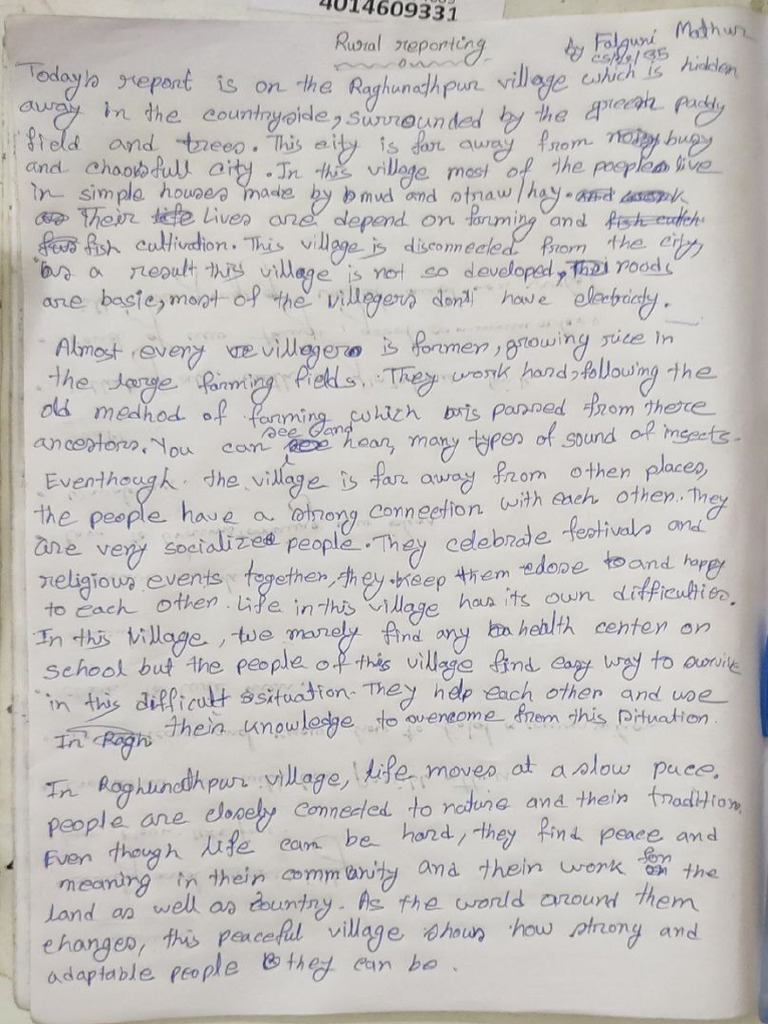 4014609331
Rural reporting
by Falguni Mathur
Today's report is on the Raghunathpur village which is hidden
away in the countryside, surrounded by the green paddy
field and trees. This city is far away from busy
and chaosfull city. In this village most of the people live
in simple houses made by mud and straw/hay.
Their Lives are depend on farming and
fish cultivation. This village is disconnected from the city,
as a result this village is not so developed, roads
are basic, most of the villegers don't have electricity.
Almost every villeger is farmer, growing rice in
the large farming fields. They work hard, following the
old medhod of farming which is passed from there
ancestors. You can see and hear, many types of sound of insects.
Eventhough the village is far away from other places,
the people have a strong connection with each other. They
are very socialized people. They celebrate festivals and
religious events together, they keep them close and happy
to each other. Life in this village has its own difficulties.
In this village, we marely find any health center or
school but the people of this village find easy way to survive
in this difficult situation. They help each other and use
their knowledge to overcome from this situation.
In Raghunathpur village, life moves at a slow pace.
people are closely connected to nature and their tradition
Even though life can be hard, they find peace and
meaning in their community and their work for the
land as well as country. As the world around them
changes, this peaceful village shows how strong and
adaptable people they can be.